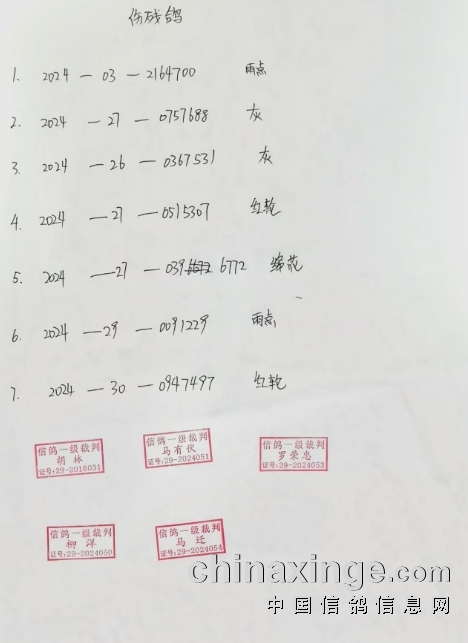 伤残鸽
1. 2024 — 03 — 2164700 雨点
2. 2024 — 27 — 0757688 灰
3. 2024 — 26 — 0367531 灰
4. 2024 — 27 — 0515307 红轮
5. 2024 — 27 — 039 6772 绛花
6. 2024 — 29 — 0091229 雨点
7. 2024 — 30 — 0947497 红轮
信鸽一级裁判 信鸽一级裁判 信鸽一级裁判
胡林 马有伏 罗荣忠
证号:29-2018031 证号:29-2024051 证号:29-2024053
信鸽一级裁判 信鸽一级裁判
柳洋 马迁
证号:29-2024050 证号:29-2024054
chinaxinge.com
中国信鸽信息网